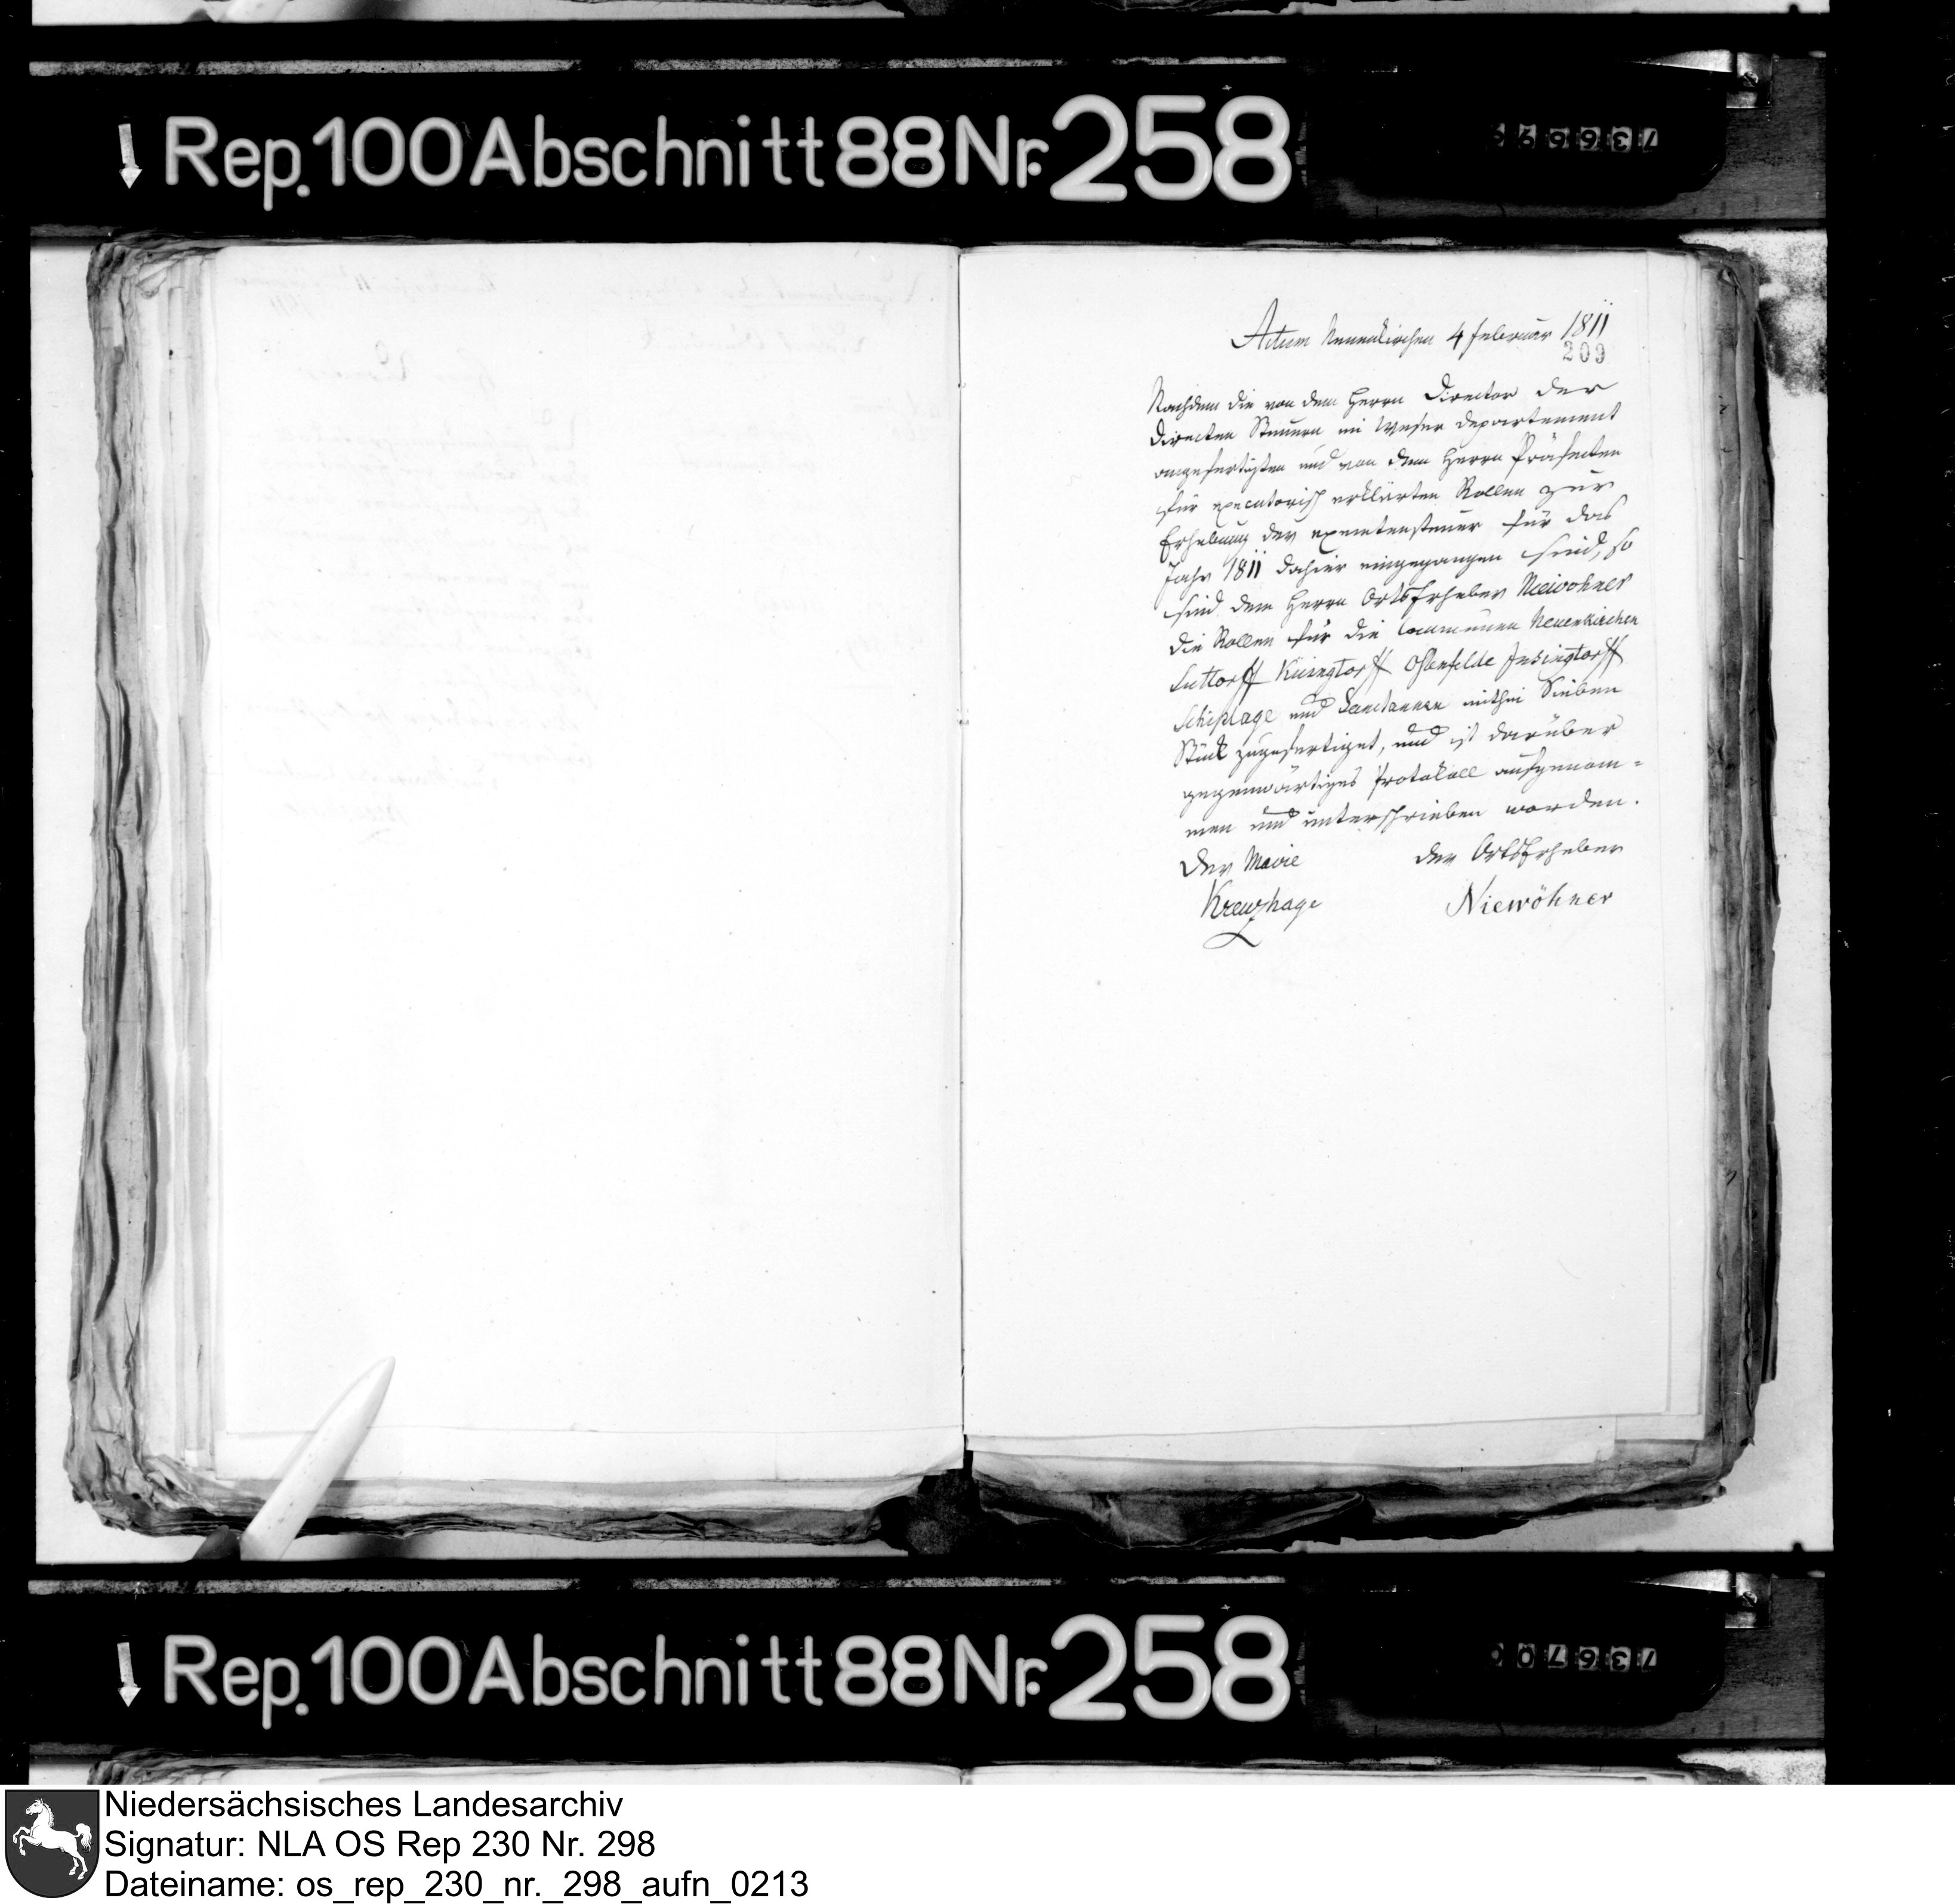 Rep. 100 Abschnitt 88 Nr. 258
73669
Actum Neuenkirchen 4 Februar 1811
209
Nachdem die von dem Herrn Director der
directen Steuern im Weser Departement
angefertigten und von dem Herrn Präfecten
für executorisch erklärten Rollen zur
Erhebung der exemtensteuer für das
Jahr 1811 dahier eingegangen sind, so
sind dem Herrn OrtsErheber Niewohner
die Rollen für die Communen Neuenkirchen
Suttorff Küingtorff Ostenfelde Insingtorff
Schiplage und Sanctannen mithin Sieben
Stück zugefertiget, und ist darüber
gegenwärtiges Protokoll aufgenom-
men und unterschrieben worden.
Der Maire
der OrtsErheber
Kreuzhage
Niewöhner
Rep. 100 Abschnitt 88 Nr. 258
73670
Niedersächsisches Landesarchiv
Signatur: NLA OS Rep 230 Nr. 298
Dateiname: os_rep_230_nr._298_aufn_0213